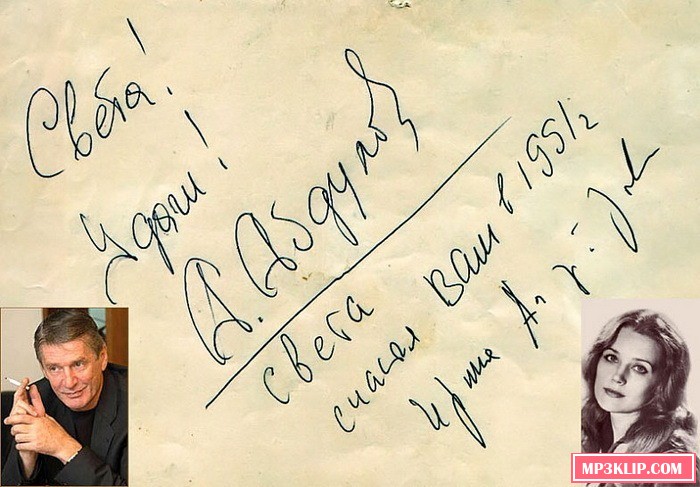 Света!
Удачи!
А. Абдулов
Света
Вам в 1995 г
Ирина
MP3KLIP.COM